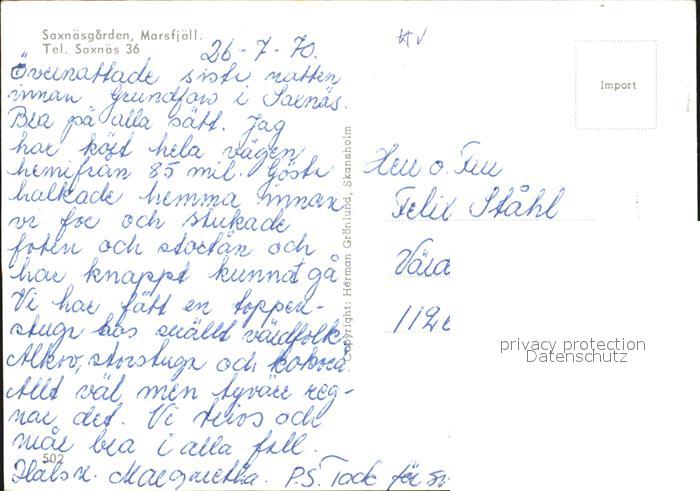 Saxnäsgården, Marsfjäll.
Tel. Saxnäs 36
26-7-70.
Övernattade sista natten
innan Grundfors i Saxnäs.
Bra på alla sätt. Jag
har kört hela vägen
hemifrån 85 mil. Gösta
halkade hemma innan
vi for och stukade
foten och stortån och
har knappt kunnat gå
Vi har fått en toppen-
stuga hos snällt värdfolk
Alkov, storstuga och kokvrå.
Allt väl men tyvärr reg-
nar det. Vi trivs och
mår bra i alla fall.
502
Hälsn. Margaretha. P.S. Tack för
Copyright: Herman Grönlund, Skansholm
Import
Herr o. Fru
Felix Ståhl
112
privacy protection
Datenschutz